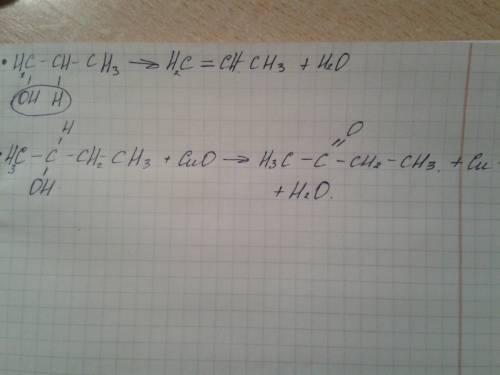 • H₂C – CH – CH₃ → H₂C = CH CH₃ + H₂O
OH H
H
• H₃C – C – CH₂ – CH₃ + CuO → H₃C – C – CH₂ – CH₃. + Cu +
O
OH
+ H₂O.